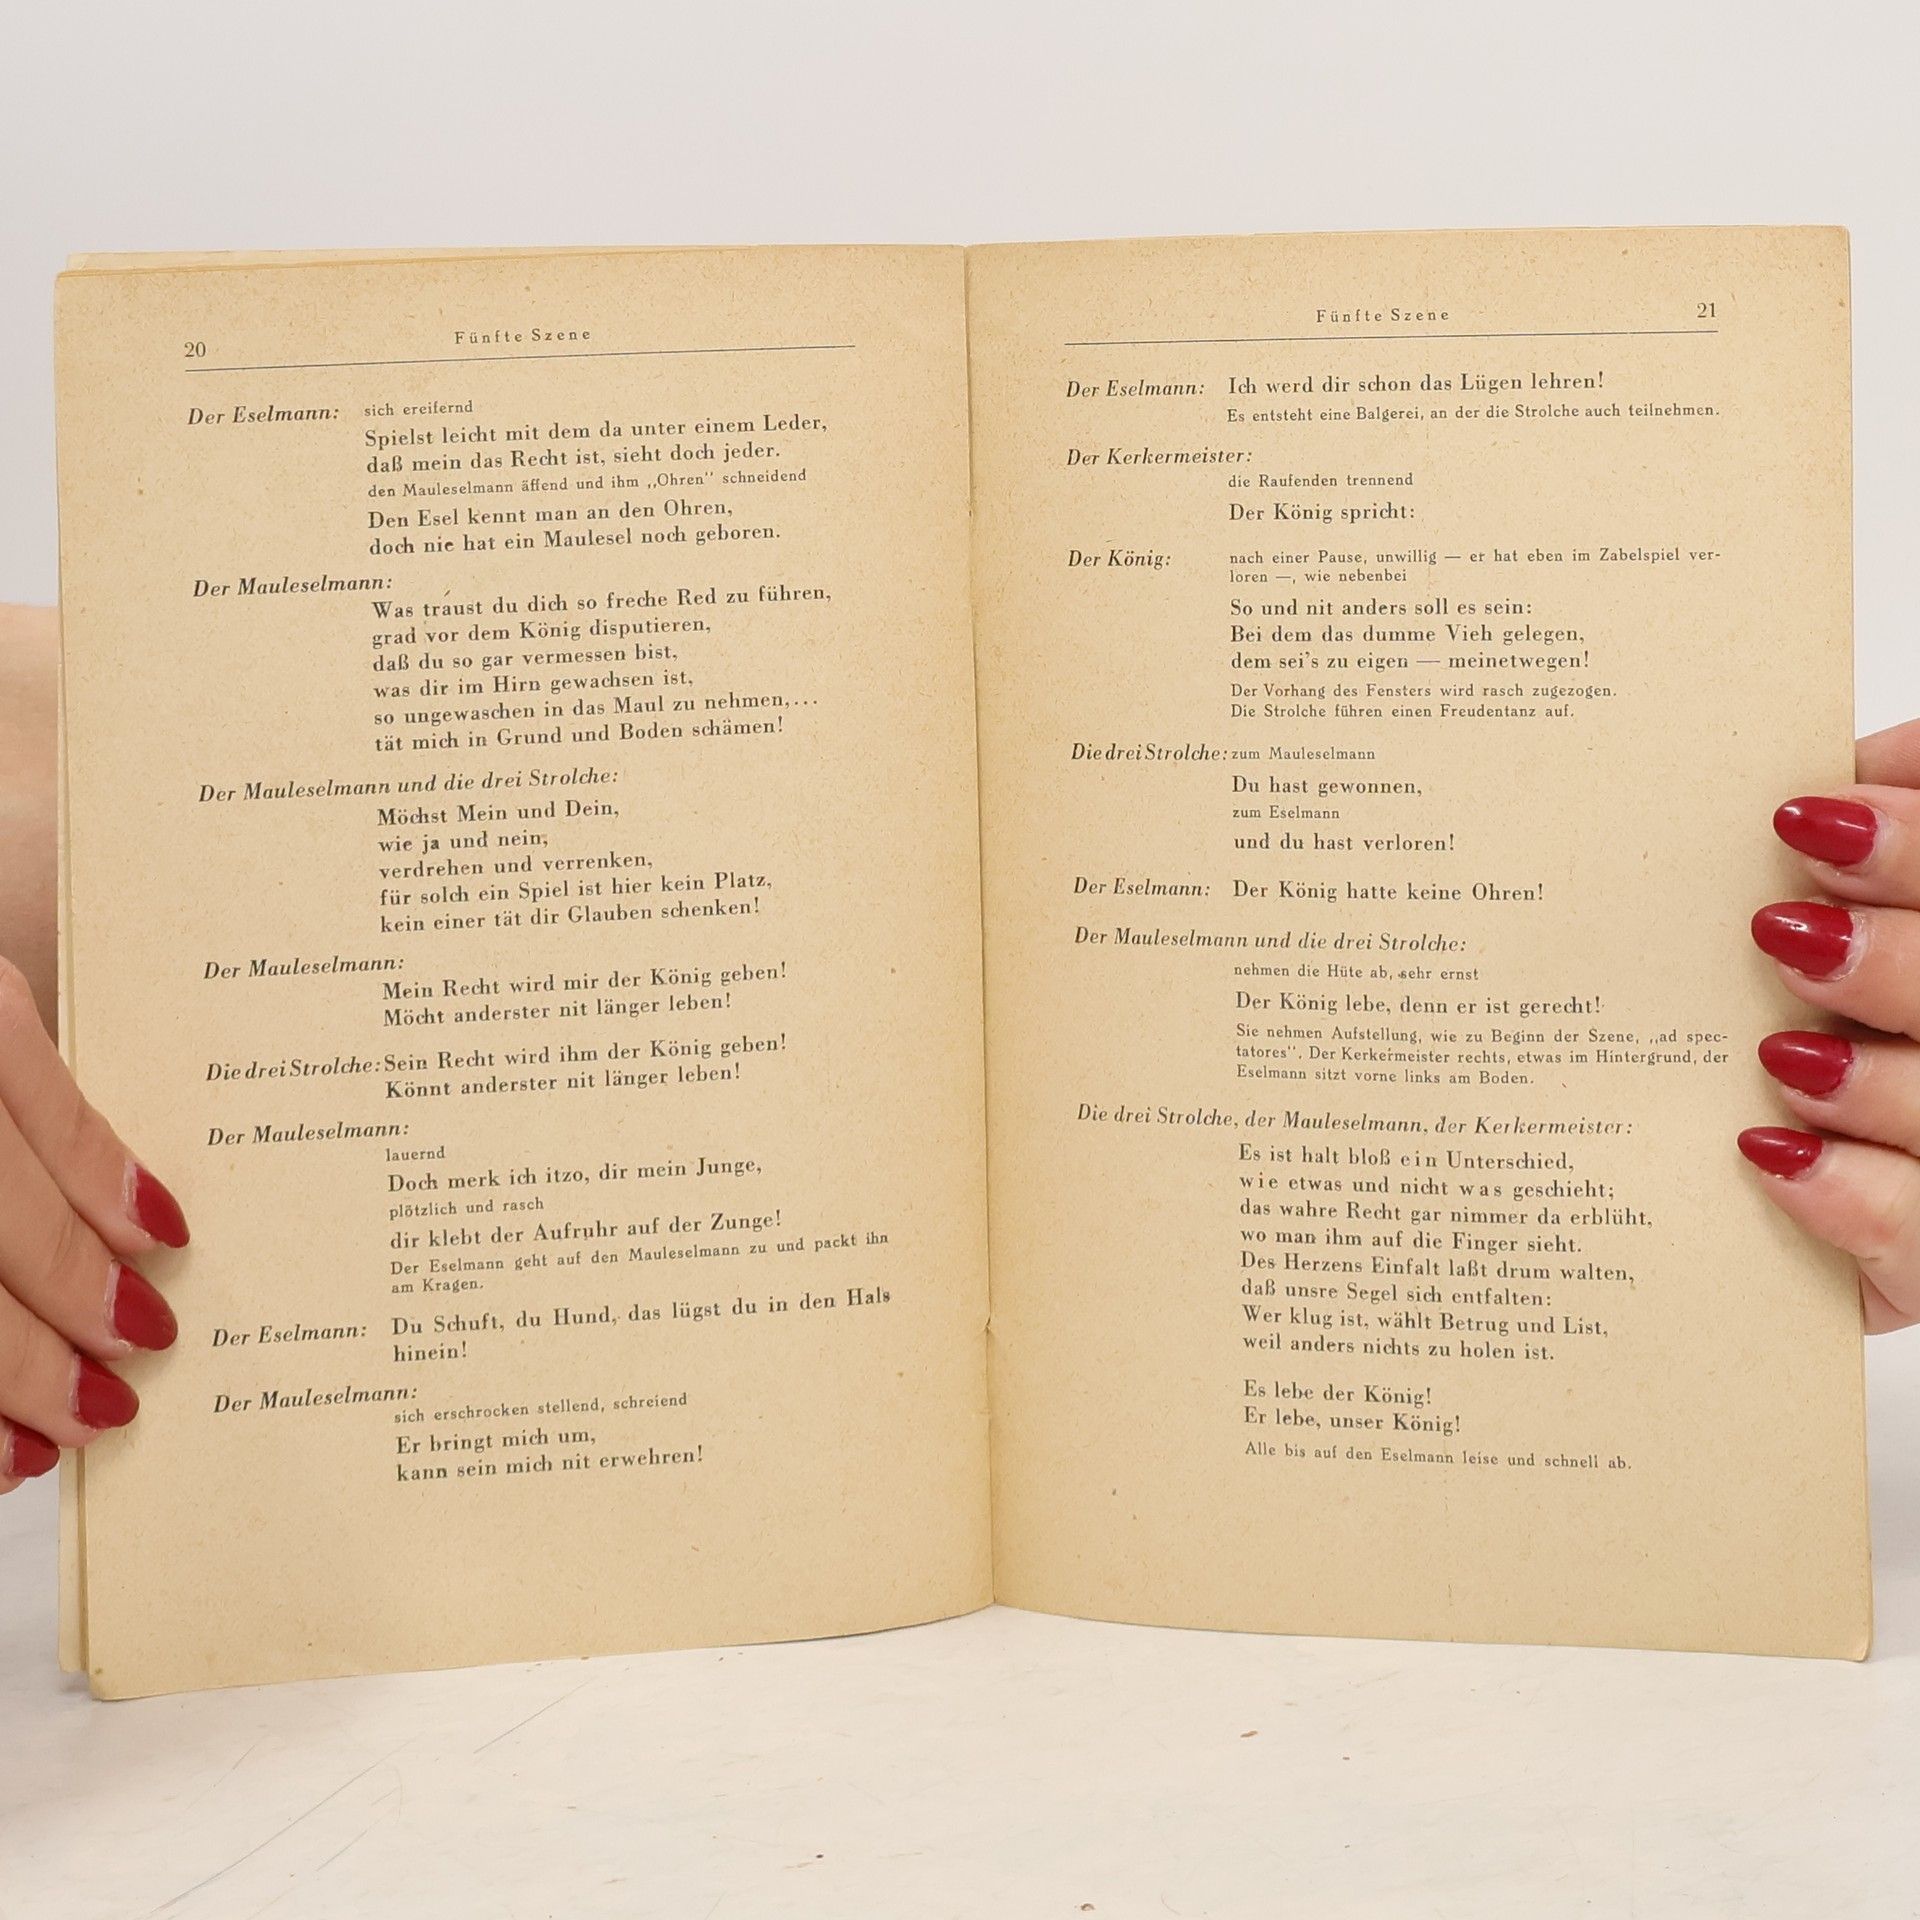 20
Fünfte Szene
Der Eselmann: sich ereifernd
Spielst leicht mit dem da unter einem Leder,
daß mein das Recht ist, sieht doch jeder.
den Mauleselmann äffend und ihm „Ohren" schneidend
Den Esel kennt man an den Ohren,
doch nie hat ein Maulesel noch geboren.
Der Mauleselmann:
Was traust du dich so freche Red zu führen,
grad vor dem König disputieren,
daß du so gar vermessen bist,
was dir im Hirn gewachsen ist,
so ungewaschen in das Maul zu nehmen,...
tät mich in Grund und Boden schämen!
Der Mauleselmann und die drei Strolche:
Möchst Mein und Dein,
wie ja und nein,
verdrehen und verrenken,
für solch ein Spiel ist hier kein Platz,
kein einer tät dir Glauben schenken!
Der Mauleselmann:
Mein Recht wird mir der König geben!
Möcht anderster nit länger leben!
Die drei Strolche: Sein Recht wird ihm der König geben!
Könnt anderster nit länger leben!
Der Mauleselmann:
lauernd
Doch merk ich itzo, dir mein Junge,
plötzlich und rasch
dir klebt der Aufruhr auf der Zunge!
Der Eselmann geht auf den Mauleselmann zu und packt ihn
am Kragen.
Der Eselmann: Du Schuft, du Hund, das lügst du in den Hals
hinein!
Der Mauleselmann:
sich erschrocken stellend, schreiend
Er bringt mich um,
kann sein mich nit erwehren!
Fünfte Szene
21
Der Eselmann: Ich werd dir schon das Lügen lehren!
Es entsteht eine Balgerei, an der die Strolche auch teilnehmen.
Der Kerkermeister:
die Raufenden trennend
Der König spricht:
Der König: nach einer Pause, unwillig — er hat eben im Zabelspiel ver-
loren —, wie nebenbei
So und nit anders soll es sein:
Bei dem das dumme Vieh gelegen,
dem sei's zu eigen — meinetwegen!
Der Vorhang des Fensters wird rasch zugezogen.
Die Strolche führen einen Freudentanz auf.
Die drei Strolche: zum Mauleselmann
Du hast gewonnen,
zum Eselmann
und du hast verloren!
Der Eselmann: Der König hatte keine Ohren!
Der Mauleselmann und die drei Strolche:
nehmen die Hüte ab, sehr ernst
Der König lebe, denn er ist gerecht!
Sie nehmen Aufstellung, wie zu Beginn der Szene, „ad spec-
tatores". Der Kerkermeister rechts, etwas im Hintergrund, der
Eselmann sitzt vorne links am Boden.
Die drei Strolche, der Mauleselmann, der Kerkermeister:
Es ist halt bloß ein Unterschied,
wie etwas und nicht was geschieht;
das wahre Recht gar nimmer da erblüht,
wo man ihm auf die Finger sieht.
Des Herzens Einfalt laßt drum walten,
daß unsre Segel sich entfalten:
Wer klug ist, wählt Betrug und List,
weil anders nichts zu holen ist.
Es lebe der König!
Er lebe, unser König!
Alle bis auf den Eselmann leise und schnell ab.